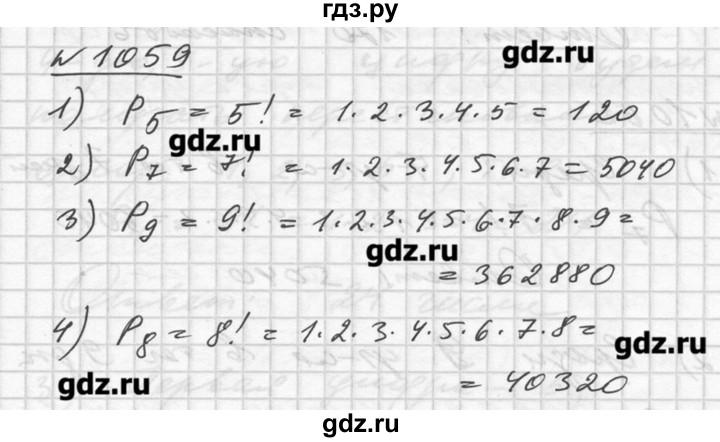 гдз.ру
№1059
gdz.ru
1) P5 = 5! = 1·2·3·4·5 = 120
gdz.ru
2) P7 = 7! = 1·2·3·4·5·6·7 = 5040
3) P9 = 9! = 1·2·3·4·5·6·7·8·9 =
gdz.ru
= 362880
4) P8 = 8! = 1·2·3·4·5·6·7·8 =
gdz.ru
gdz.ru
= 40320
gdz.ru